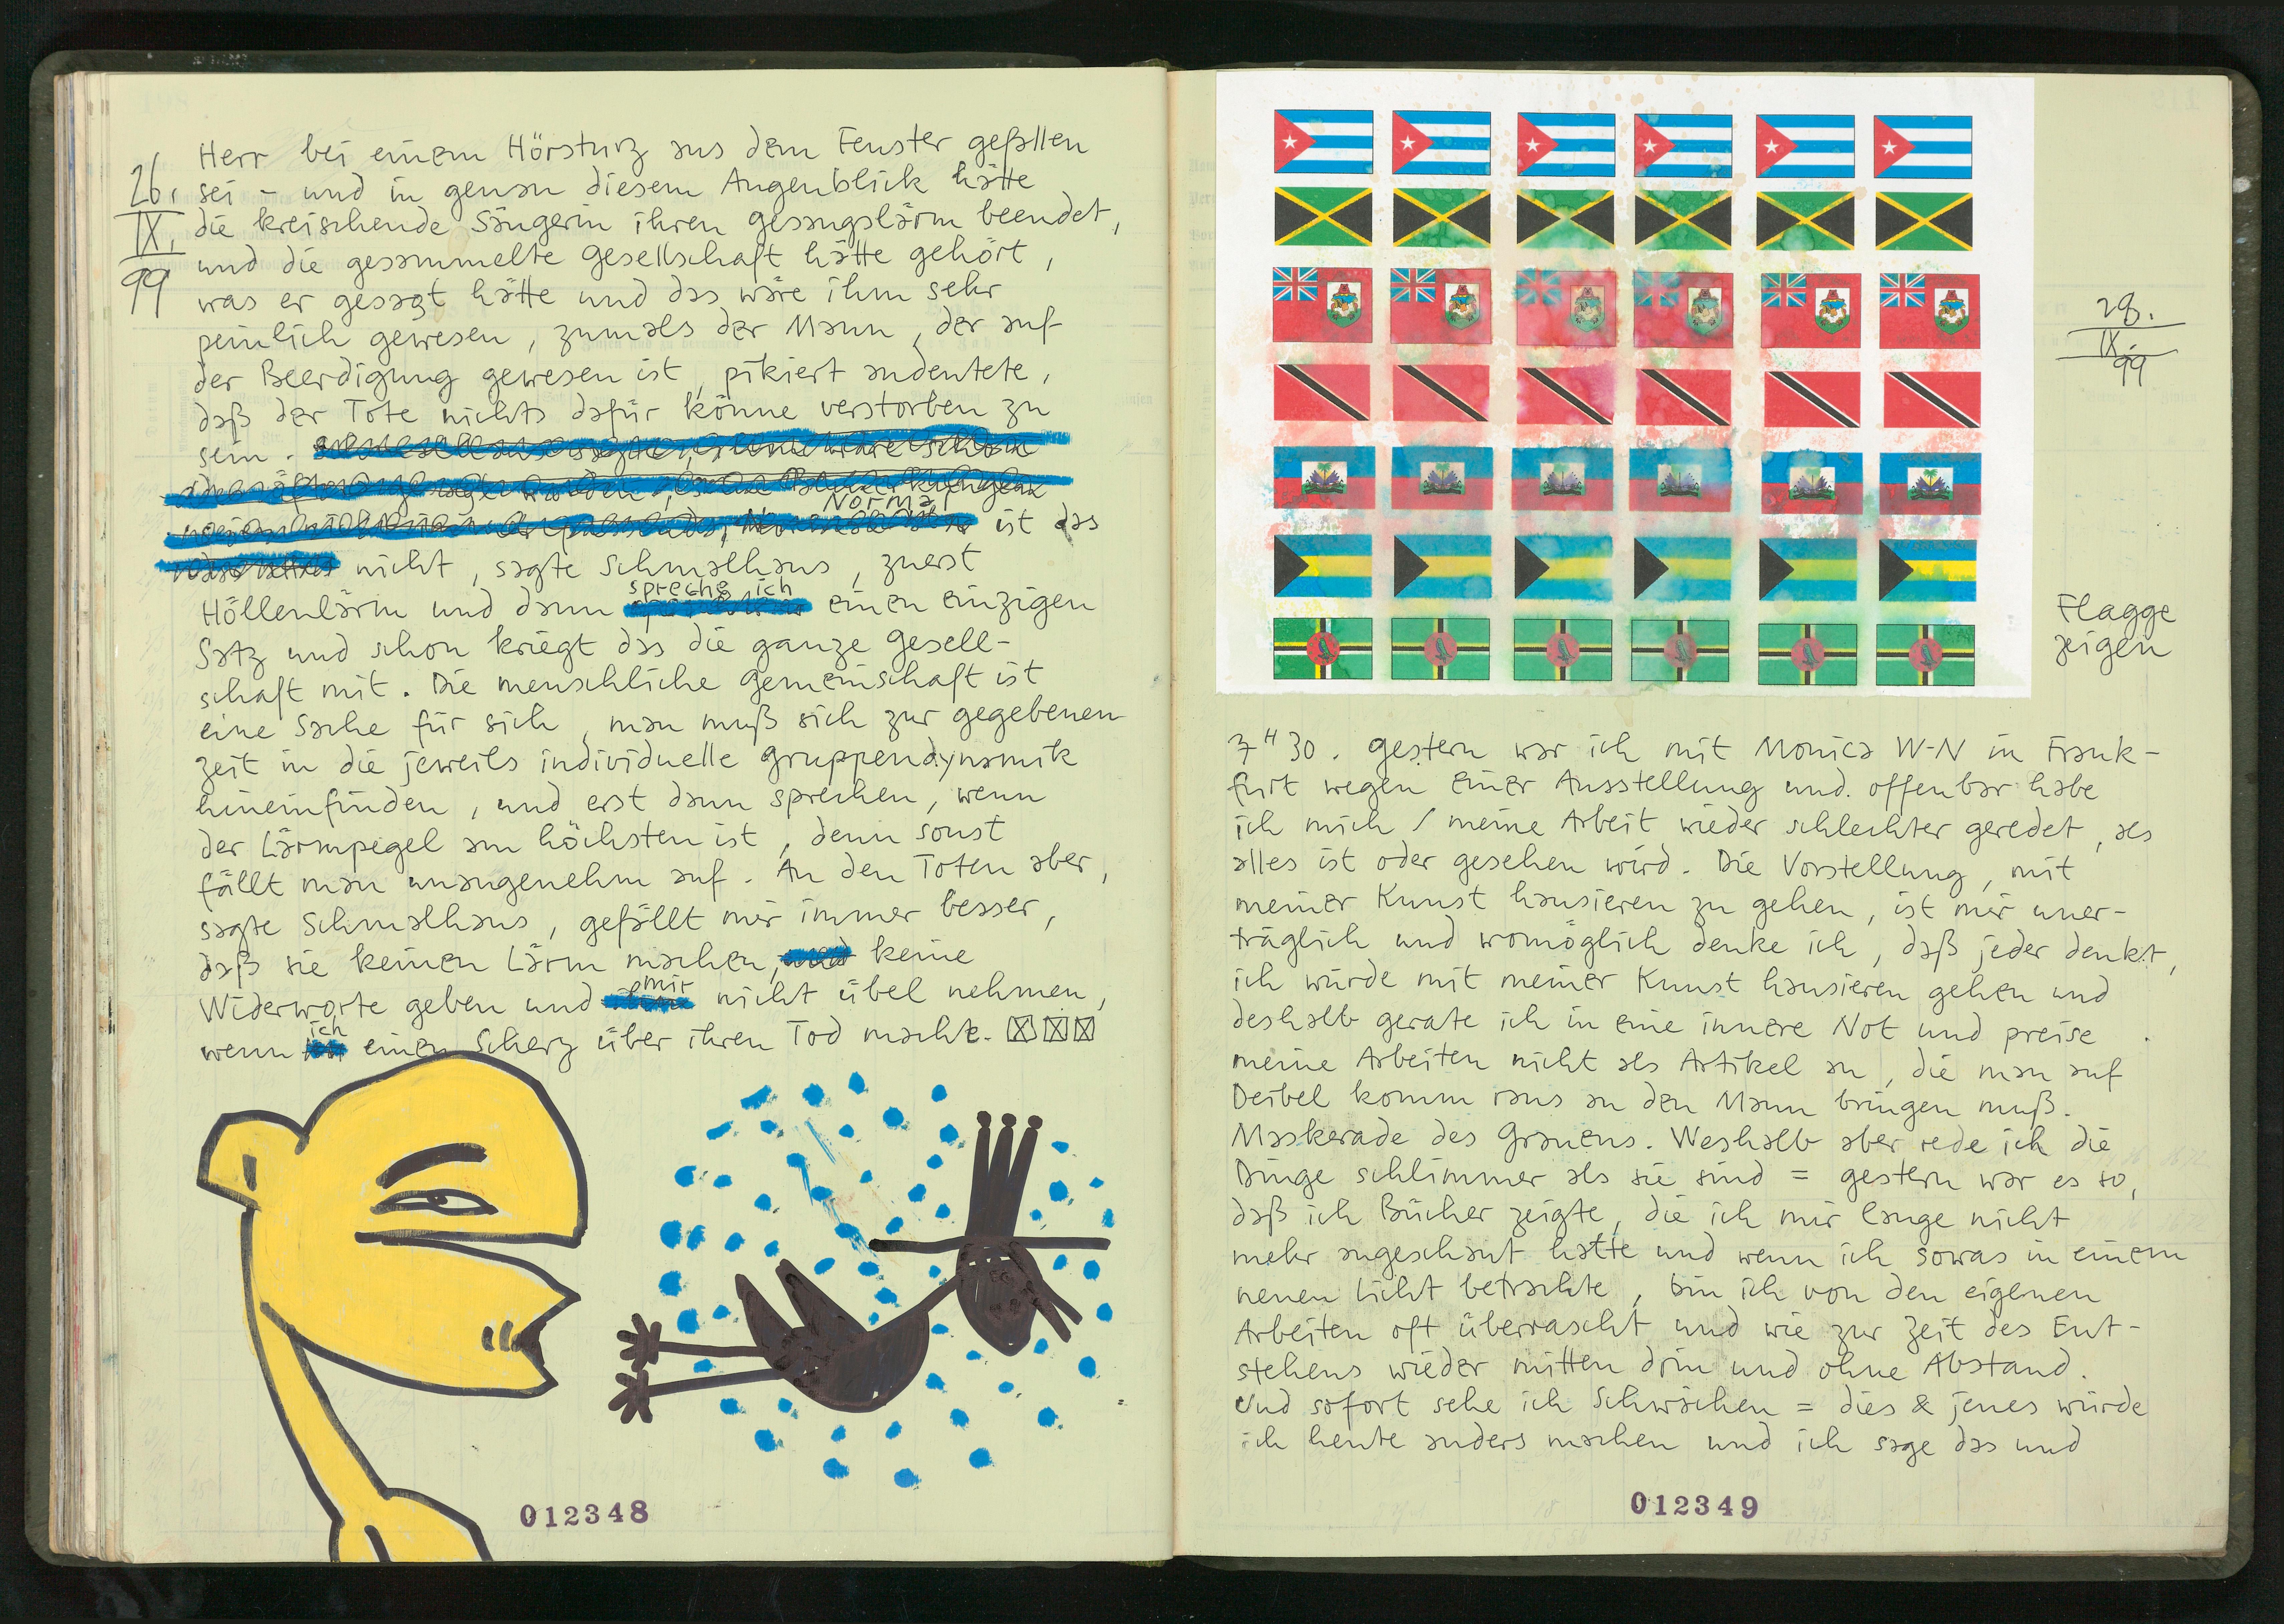 26.
IX.
99
Herr bei einem Hörsturz aus dem Fenster gefallen
sei – und in genau diesem Augenblick hätte
die kreischende Sängerin ihren Gesangslärm beendet,
und die gesammelte Gesellschaft hätte gehört,
was er gesagt hätte und das wäre ihm sehr
peinlich gewesen, zumals der Mann, der auf
der Beerdigung gewesen ist, pikiert andeutete,
daß der Tote nichts dafür könne verstorben zu
sein.
Normal
ist das
nicht, sagte Schmalhans, zuerst
spreche ich
Höllenlärm und dann einen einzigen
Satz und schon kriegt das die ganze Gesell-
schaft mit. Die menschliche Gemeinschaft ist
eine Sache für sich, man muß sich zur gegebenen
Zeit in die jeweils individuelle Gruppendynamik
hineinfinden, und erst dann sprechen, wenn
der Lärmpegel am höchsten ist, denn sonst
fällt man unangenehm auf. An den Toten aber,
sagte Schmalhans, gefällt mir immer besser,
daß sie keinen Lärm machen, keine
mir
Widerworte geben und nicht übel nehmen,
ich
wenn einen Scherz über ihren Tod mache.
012348
28.
IX.
99
Flagge
zeigen
7 H 30. Gestern war ich mit Monica W-N in Frank-
furt wegen einer Ausstellung und offenbar habe
ich mich / meine Arbeit wieder schlechter geredet, als
alles ist oder gesehen wird. Die Vorstellung, mit
meiner Kunst hausieren zu gehen, ist mir uner-
träglich und womöglich denke ich, daß jeder denkt,
ich würde mit meiner Kunst hausieren gehen und
deshalb gerate ich in eine innere Not und preise
meine Arbeiten nicht als Artikel an, die man auf
Deibel komm raus an den Mann bringen muß.
Maskerade des Grauens. Weshalb aber rede ich die
Dinge schlimmer als sie sind = gestern war es so,
daß ich Bücher zeigte, die ich mir lange nicht
mehr angeschaut hatte und wenn ich sowas in einem
neuen Licht betrachte, bin ich von den eigenen
Arbeiten oft überrascht und wie zur Zeit des Ent-
stehens wieder mitten drin und ohne Abstand.
Und sofort sehe ich Schwächen = dies & jenes würde
ich heute anders machen und ich sage das und
012349